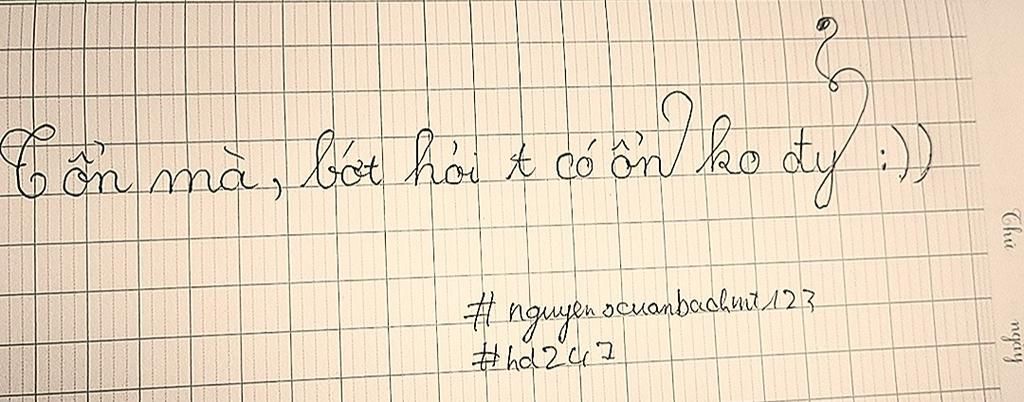 T ổn mà, bớt hỏi t có ổn ko đy :))
#nguyenxuanbachmt123
#hd247
Thứ
ngày